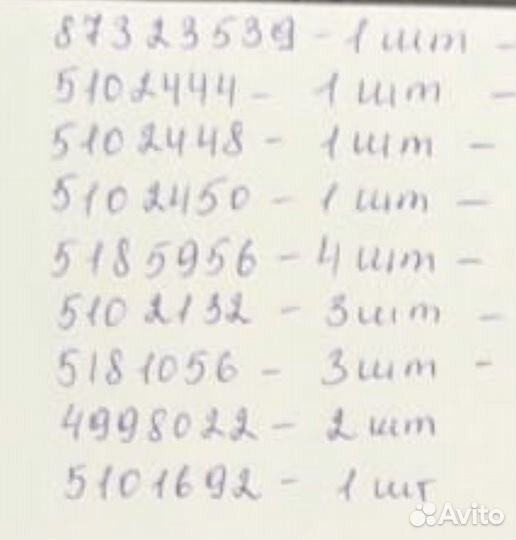 87323539 - 1 шт -
5102444 - 1 шт -
5102448 - 1 шт -
5102450 - 1 шт -
5185956 - 4 шт -
5102132 - 3 шт -
5181056 - 3 шт -
4998022 - 2 шт
5101692 - 1 шт
Avito